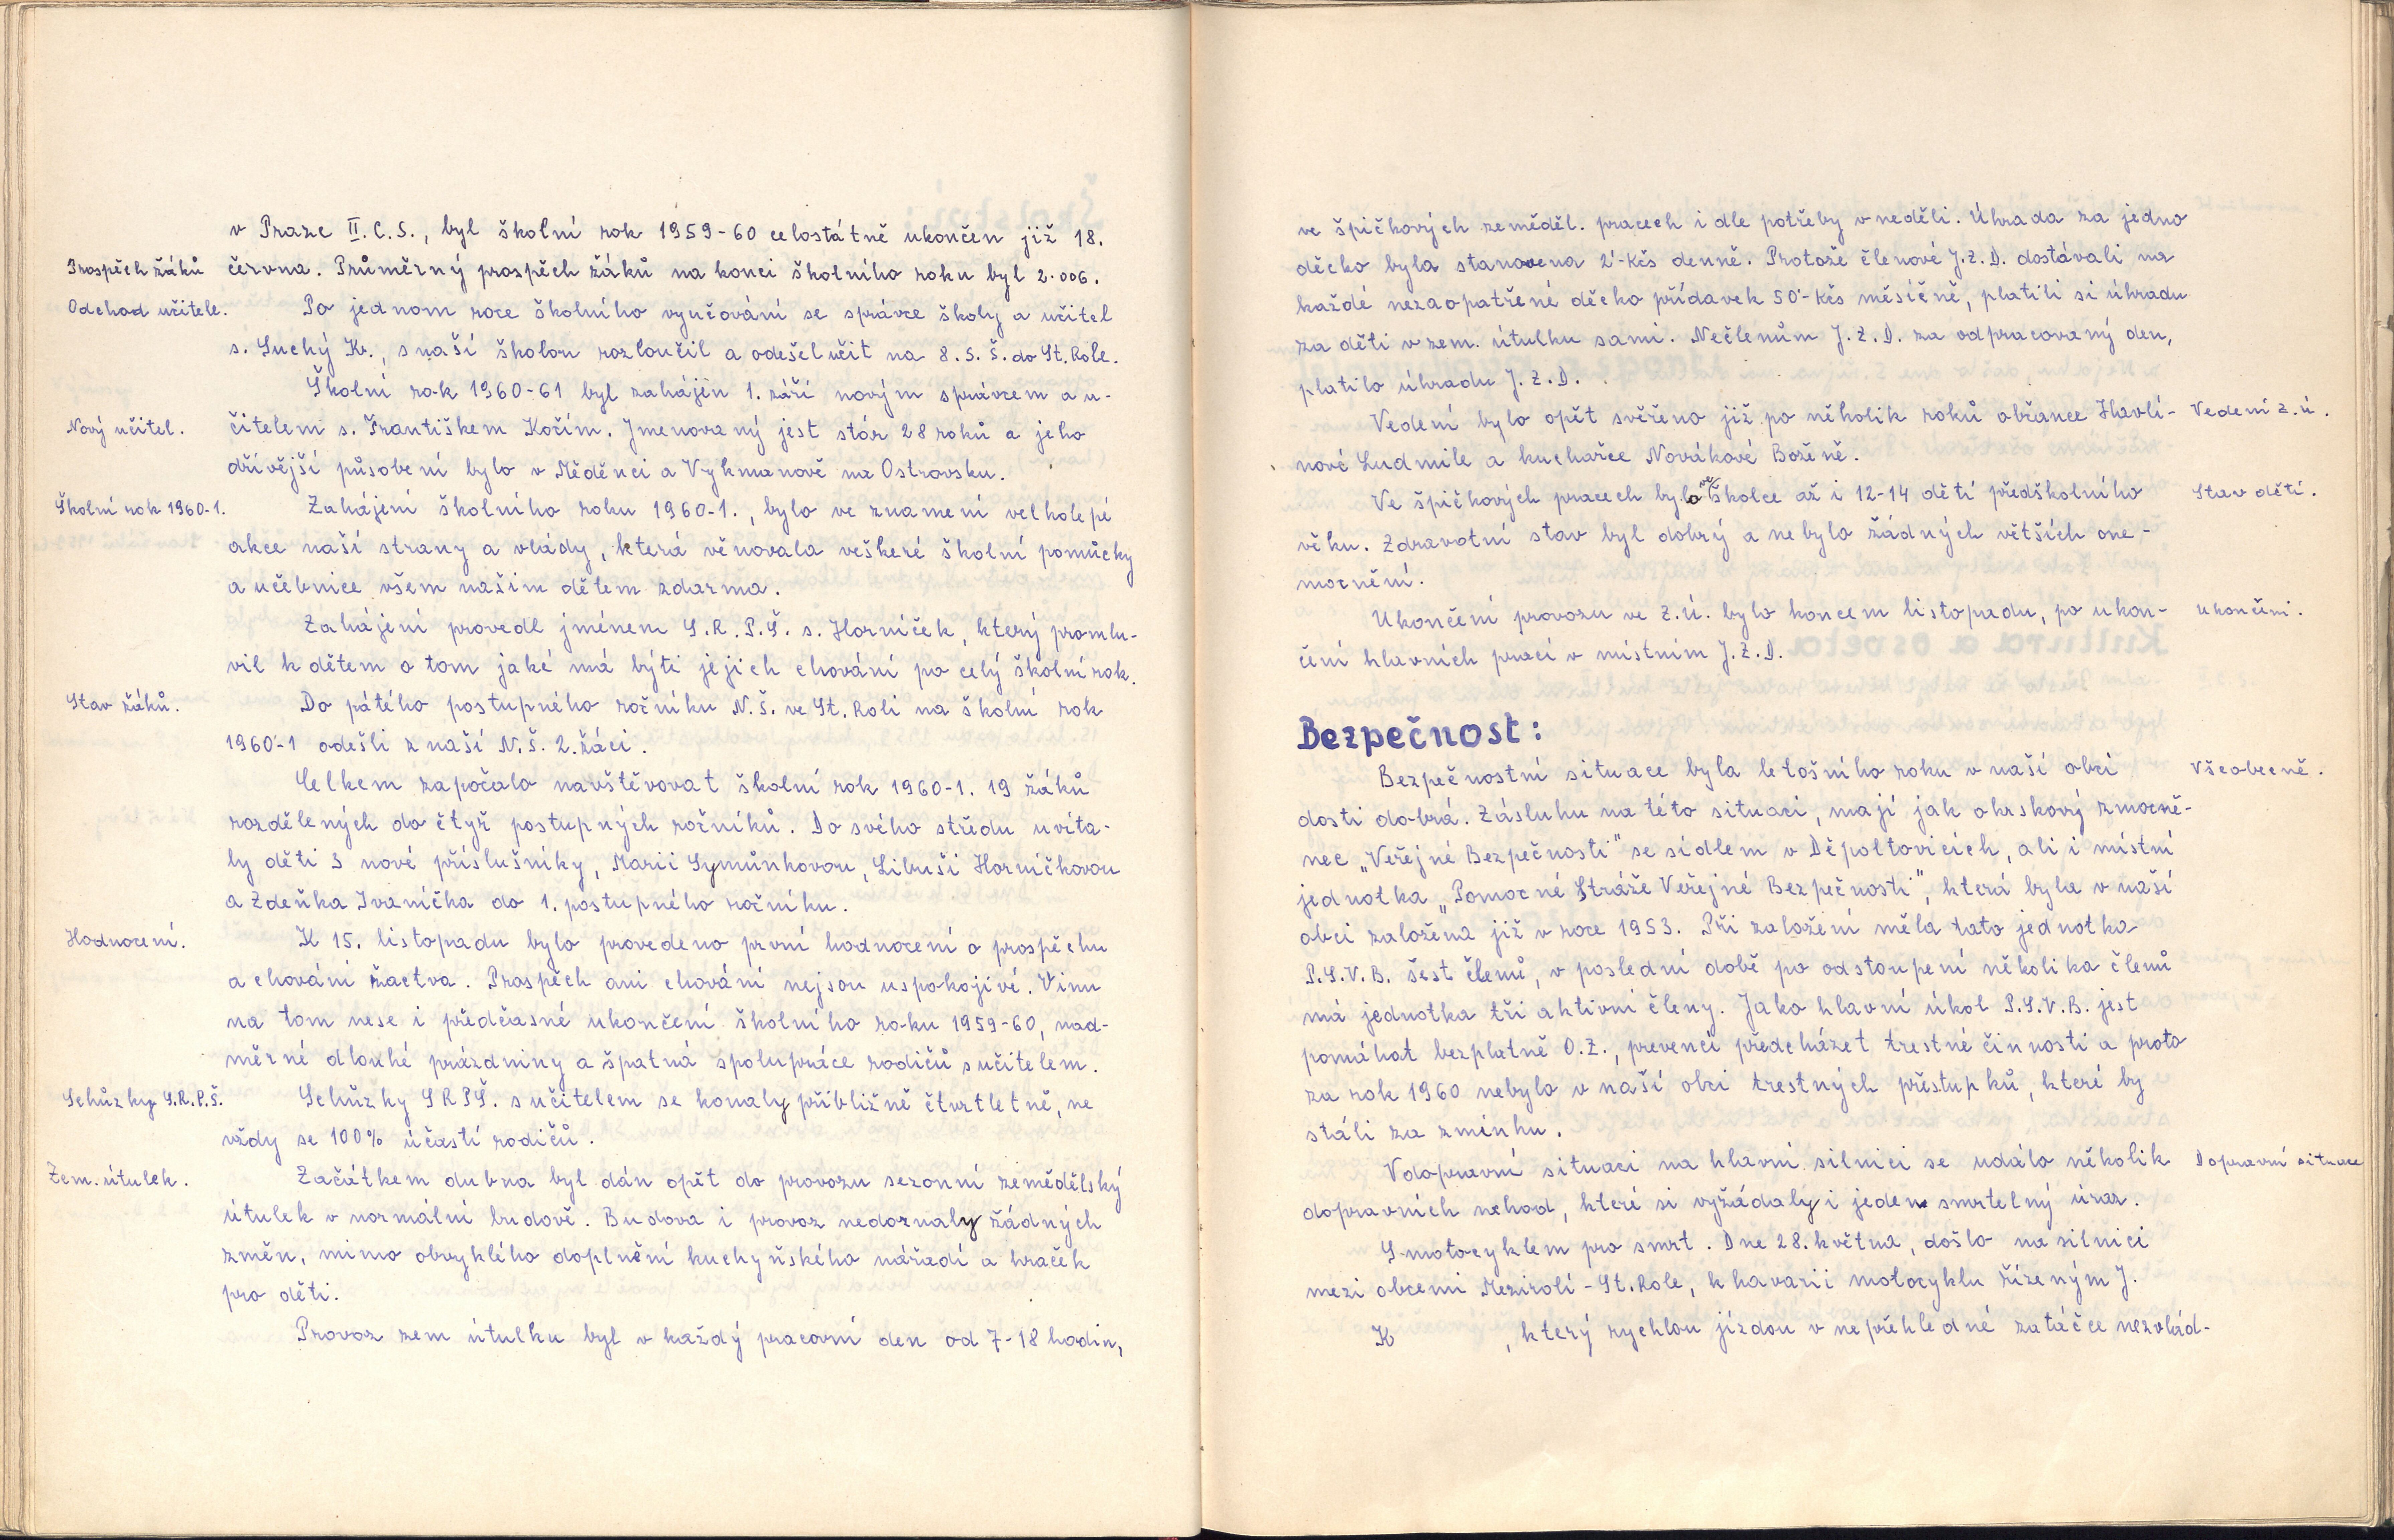 v Praze II. C. S., byl školní rok 1959-60 celostátně ukončen již 18.
Prospěch žáků
června. Průměrný prospěch žáků na konci školního roku byl 2.006.
Odchod učitele.
Po jednom roce školního vyučování se správce školy a učitel
s. Suchý Kr., s naší školou rozloučil a odešel učit na 8. S. Š. do St. Role.
Školní rok 1960-61 byl zahájen 1. září novým správcem a u-
Nový učitel.
čitelem s. Františkem Kočím. Jmenovaný jest stár 28 roků a jeho
dřívější působení bylo v Měděnci a Vykmanově na Ostrovsku.
Školní rok 1960-1.
Zahájení školního roku 1960-1., bylo ve znamení velkolepé
akce naší strany a vlády, která věnovala veškeré školní pomůcky
a učebnice všem našim dětem zdarma.
Zahájení provedl jménem S. R. P. Š. s. Horníček, který promlu-
vil k dětem o tom jaké má býti jejich chování po celý školní rok.
Stav žáků.
Do pátého postupného ročníku N. Š. ve St. Roli na školní rok
1960-1 odešli z naší N. Š. 2. žáci.
Celkem započalo navštěvovat školní rok 1960-1. 19 žáků
rozdělených do čtyř postupných ročníků. Do svého středu uvíta-
ly děti 3 nové příslušníky, Marii Symůnkovou, Libuši Horníčkovou
a Zdeňka Ivaníčka do 1. postupného ročníku.
Hodnocení.
K 15. listopadu bylo provedeno první hodnocení o prospěchu
a chování žactva. Prospěch ani chování nejsou uspokojivé. Vinu
na tom nese i předčasné ukončení školního roku 1959-60, nad-
měrné dlouhé prázdniny a špatná spolupráce rodičů s učitelem.
Schůzky S. R. P. Š.
Schůzky SRPŠ. s učitelem se konaly přibližně čtvrtletně, ne
vždy se 100% účastí rodičů.
Zem. útulek.
Začátkem dubna byl dán opět do provozu sezonní zemědělský
útulek v normální budově. Budova i provoz nedoznaly žádných
změn, mimo obvyklého doplnění kuchyňského nářadí a hraček
pro děti.
Provoz zem útulku byl v každý pracovní den od 7-18 hodin,
ve špičkových zeměděl. pracech i dle potřeby v neděli. Úhrada za jedno
děcko byla stanovena 2'-Kčs denně. Protože členové J. Z. D. dostávali na
každé nezaopatřené děcko přídavek 50'-Kčs měsíčně, platili si úhradu
za děti v zem. útulku sami. Nečlenům J. Z. D. za odpracovaný den,
platilo úhradu J. Z. D.
Vedení bylo opět svěřeno již po několik roků občance Havlí-
Vedení z. ú.
nové Ludmile a kuchařce Novákové Boženě.
Ve špičkových pracech bylo ve školce až i 12-14 dětí předškolního
Stav dětí.
věku. Zdravotní stav byl dobrý a nebylo žádných větších one-
mocnění.
Ukončení provozu ve Z. Ú. bylo koncem listopadu, po ukon-
ukončení.
čení hlavních prací v místním J. Z. D.
Bezpečnost:
Bezpečnostní situace byla letošního roku v naší obci
Všeobecně.
dosti dobrá. Zásluhu na této situaci, mají jak okrskový zmocně-
nec „Veřejné Bezpečnosti" se sídlem v Děpoltovicích, ali i místní
jednotka „Pomocné Stráže Veřejné Bezpečnosti", která byla v naší
obci založena již v roce 1953. Při založení měla tato jednotka
P. S. V. B. šest členů, v poslední době po odstoupení několika členů
má jednotka tři aktivní členy. Jako hlavní úkol P. S. V. B. jest
pomáhat bezplatně O. Z., prevencí předcházet trestné činnosti a proto
za rok 1960 nebylo v naší obci trestných přestupků, které by
stáli za zmínku.
V dopravní situaci na hlavní silnici se událo několik
Dopravní situace
dopravních nehod, které si vyžádaly i jeden smrtelný úraz.
S motocyklem pro smrt. Dne 28. května, došlo na silnici
mezi obcemi Mezirolí - St. Role, k havarii motocyklu řízeným J.
K , který rychlou jízdou v nepřehledné zatáčce nezvlád-